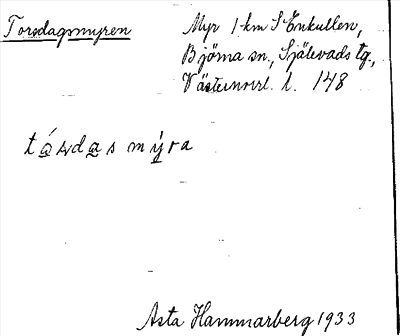 Torsdagsmyren
Myr 1 km S Enkullen,
Björna sn, Själevads tg.,
Västernorrl. l. 148
tá̱sda̱s mý̱ra
Asta Hammarberg 1933